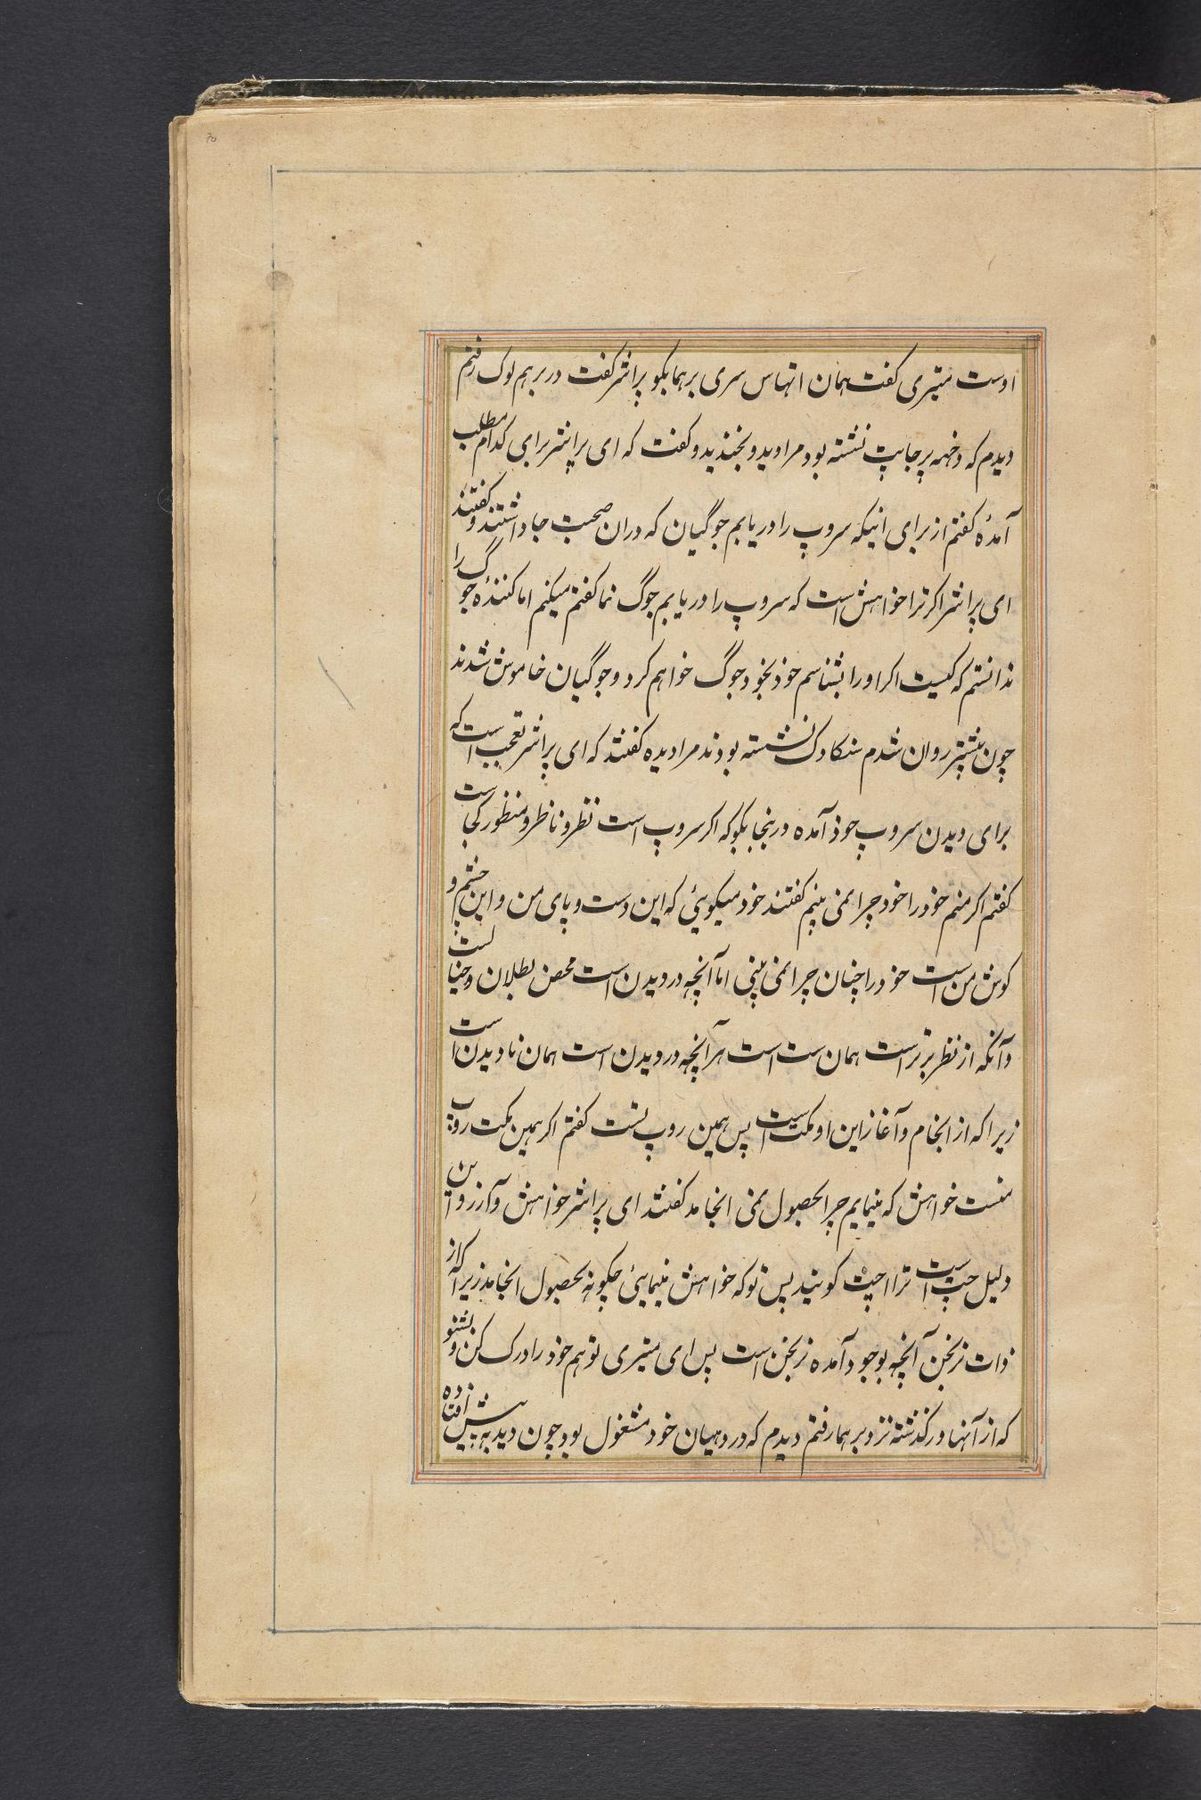 اوست میتیری گفت همان اتهاس سری برهما بگو پراشر گفت در برهم لوک رفتم
دیدم که دخهه پرجاپت نشسته بود مرا دید و بخندید و گفت که ای پراشر برای کدام مطلب
آمدهٔ گفتم از برای اینکه سروپ را دریابم جوگیان که دران صحبت جا داشتند گفتند
ای پراشر اگر ترا خواهش است که سروپ را دریابم جوگ نما گفتم میکنم اما کنندهٔ جوگ را
ندانستم که کیست اگر او را بشناسم خود بخود جوگ خواهم کرد و جوگیان خاموش شدند
چون پیشتر روان شدم سنکادک نشسته بودند مرا دیده گفتند که ای پراشر تعجب است که
برای دیدن سروپ خود آمده درینجا بگو که اگر سروپ است نظر و ناظر و منظور کجاست
گفتم اگر منم خود را خود چرا نمی بینم گفتند خود میگوئی که این دست و پای من و این چشم و
گوش من است خود را چنان چرا نمی بینی اما آنچه در دیدن است محض بطلان و خیالست
و آنکه از نظر برتر است همان ست است هر آنچه در دیدن است همان نادیدن است
زیرا که از انجام و آغاز این او مکت است پس همین روپ تست گفتم اگر همین مکت روپ
منست خواهش که مینمایم چرا بحصول نمی انجامد گفتند ای پراشر خواهش و آرزو این
دلیل چت است ترا اچت گویند پس تو که خواهش مینمایئی چگونه بحصول انجامد زیرا که از
ذات نرنجن آنچه بوجود آمده نرنجن است پس ای میتیری تو هم خود را درک کن و بشنو
که از آنها درگذشته نزد برهما رفتم دیدم که در دهیان خود مشغول بود چون دید به پیش افتاده